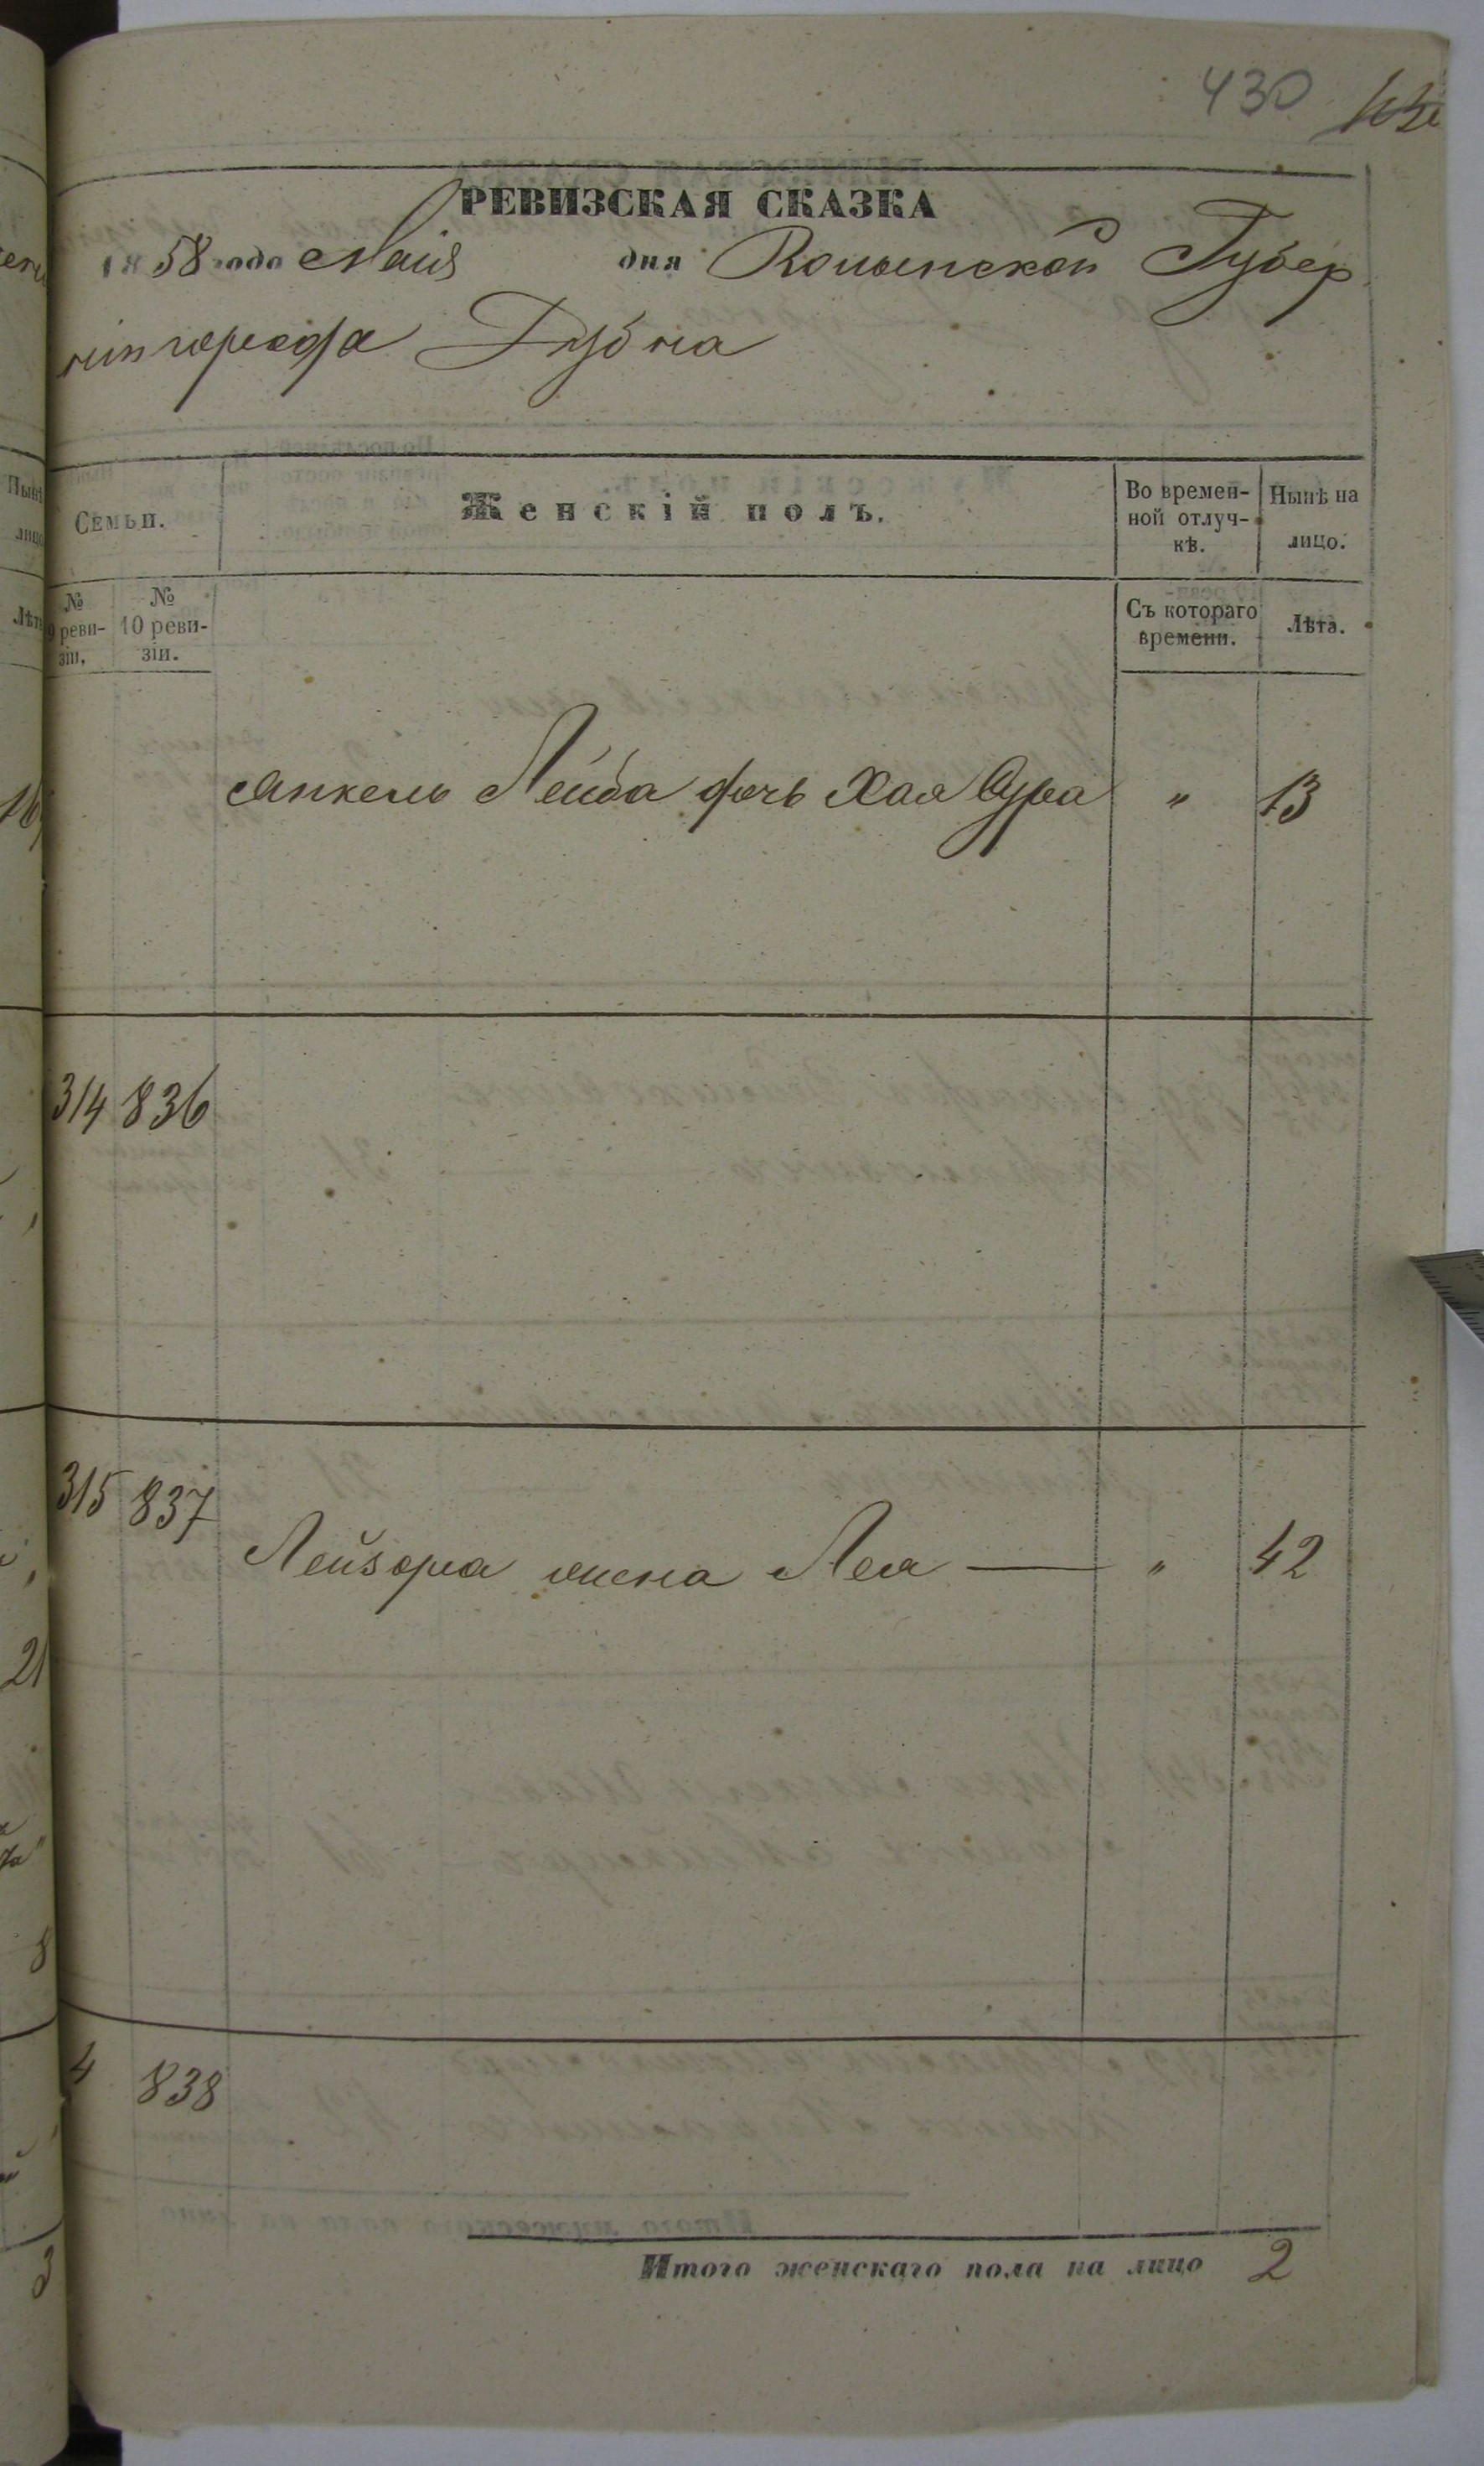 430
РЕВИЗСКАЯ СКАЗКА
1858 года Маія дня Волынской Губер
ніи города Дубна
Семьи.
Женскій полъ.
Во времен-
ной отлуч-
кѣ.
Нынѣ на
лицо.
№
9 реви-
зіи.
№
10 реви-
зіи.
Съ котораго
времени.
Лѣта.
Янкель Лейба дочь Хая Сура " 13
314 836
315 837
Лейзора жена Лея — " 42
4 838
Итого женскаго пола на лицо 2